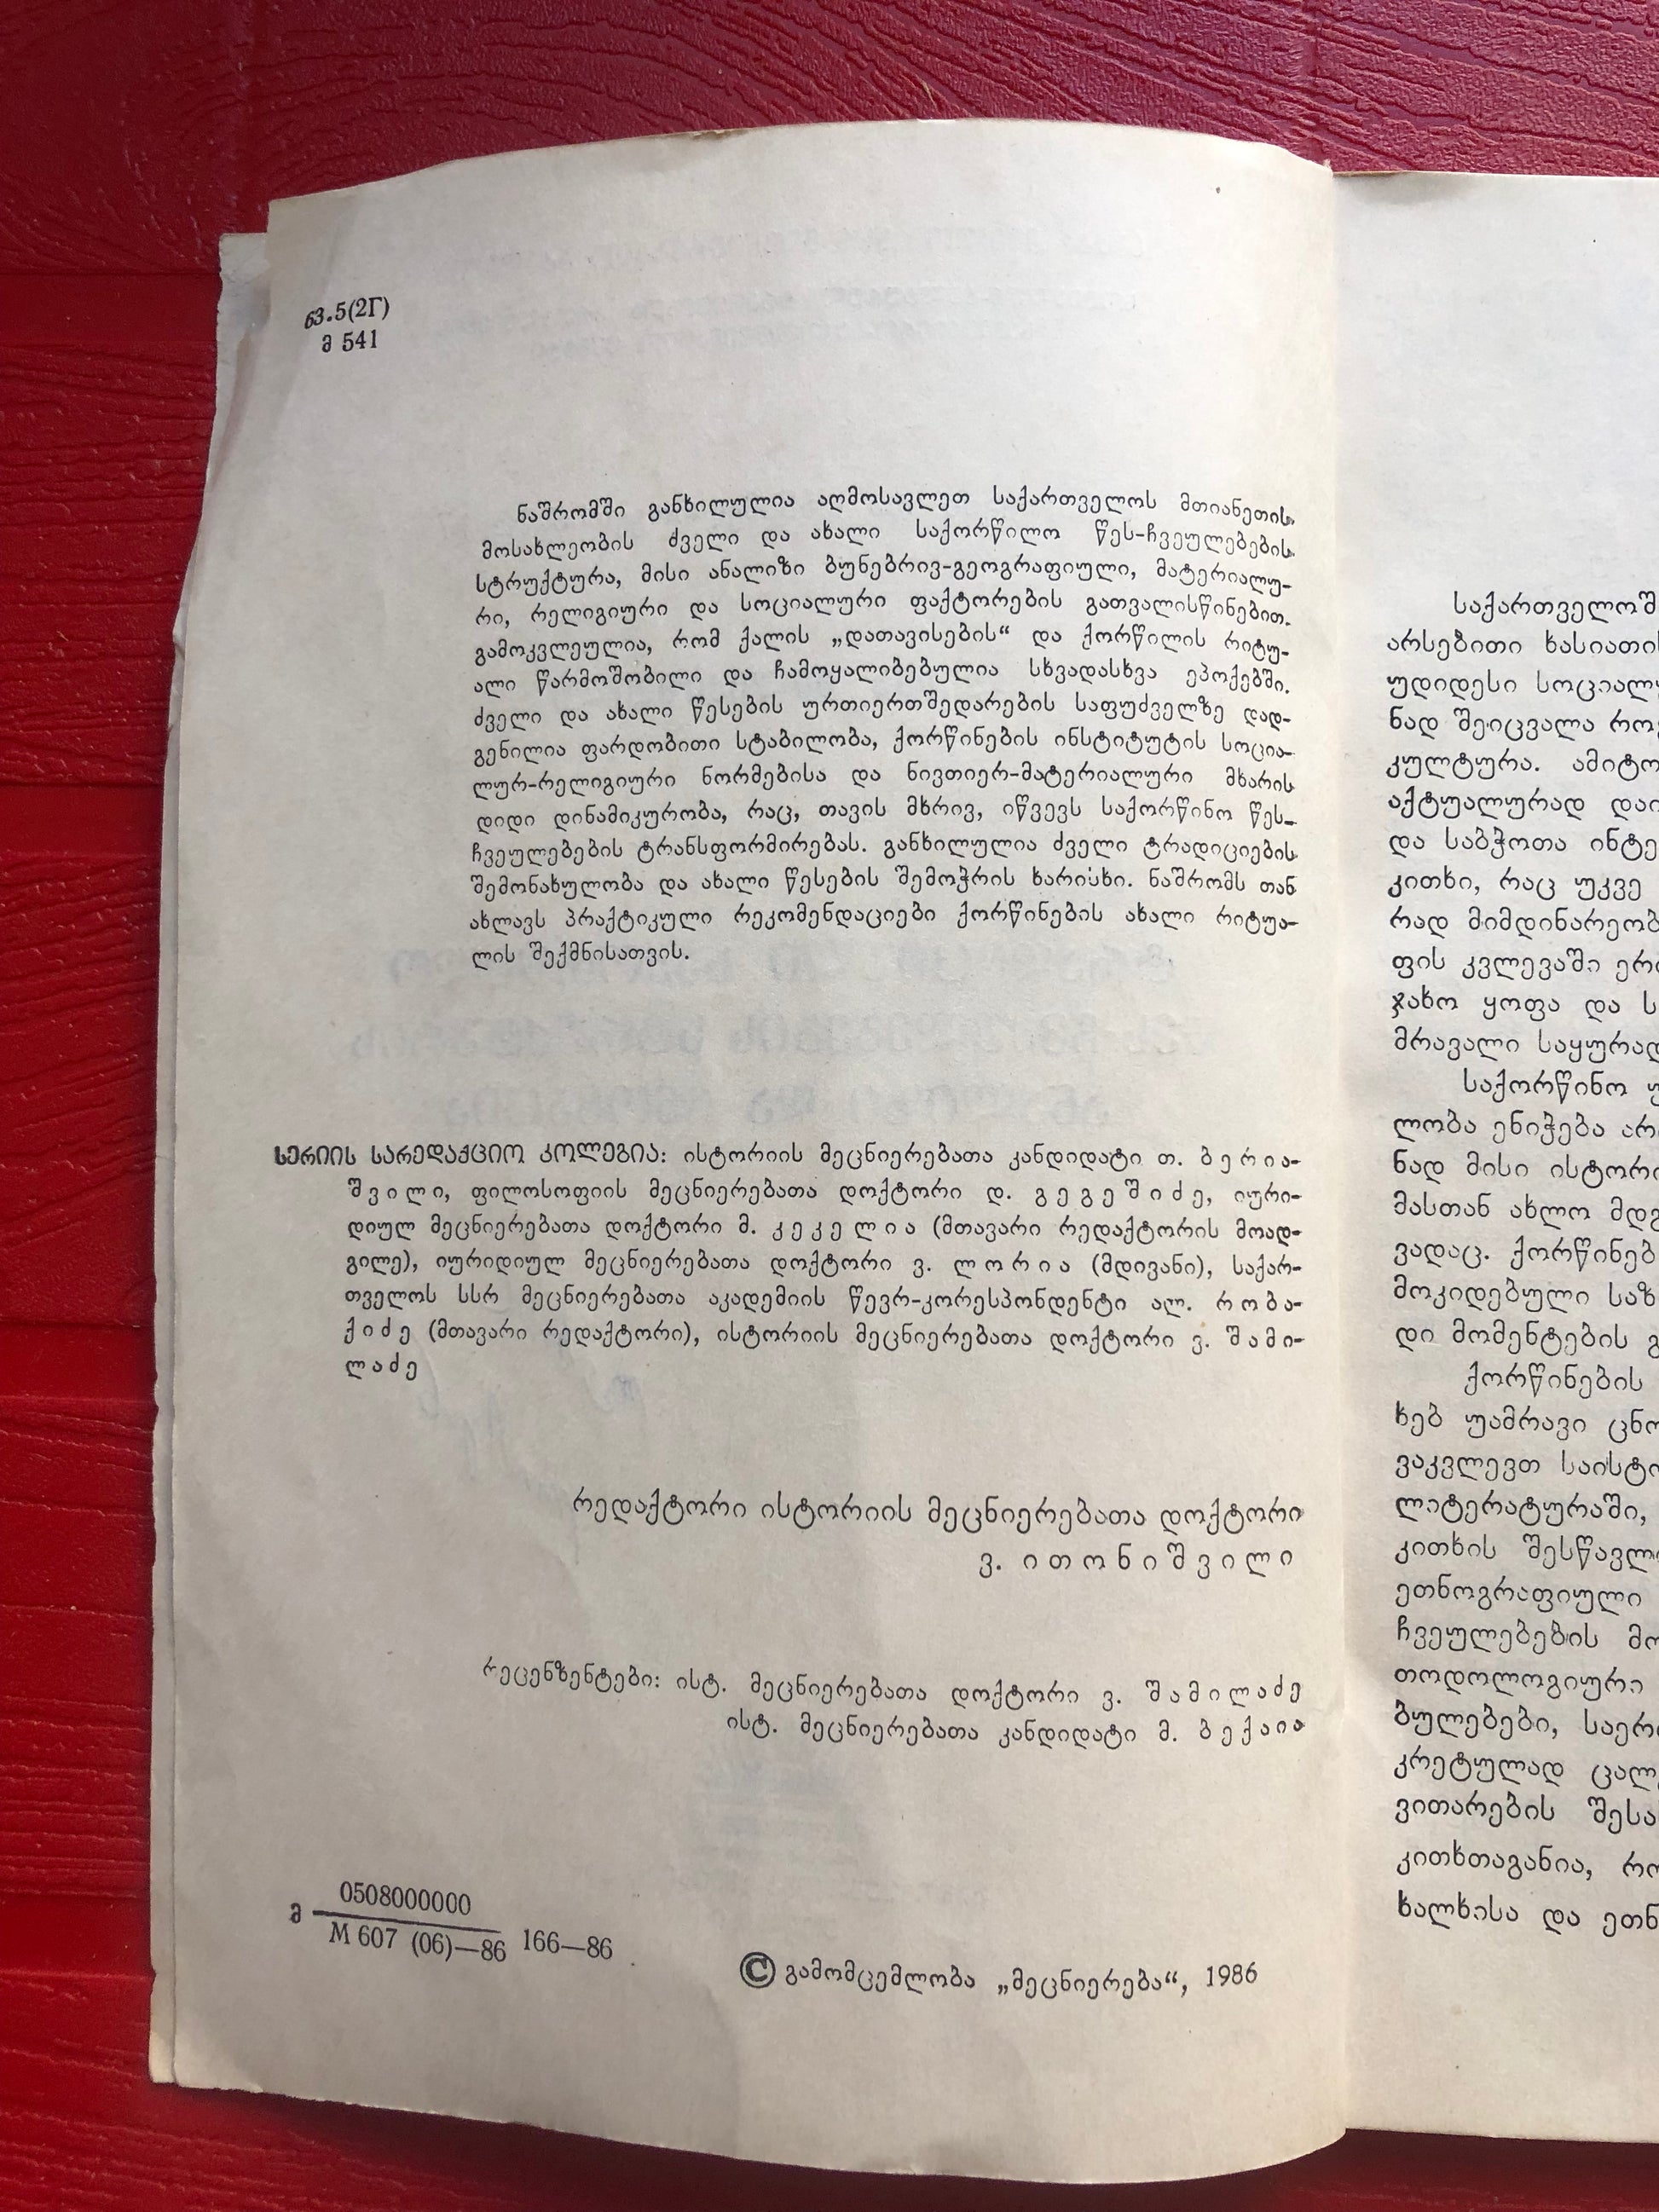 63.5(2Г)
მ 541
ნაშრომში განხილულია აღმოსავლეთ საქართველოს მთიანეთის
მოსახლეობის ძველი და ახალი საქორწილო წეს-ჩვეულებების
სტრუქტურა, მისი ანალიზი ბუნებრივ-გეოგრაფიული, მატერიალუ-
რი, რელიგიური და სოციალური ფაქტორების გათვალისწინებით.
გამოკვლეულია, რომ ქალის „დათავისების“ და ქორწილის რიტუ-
ალი წარმოშობილი და ჩამოყალიბებულია სხვადასხვა ეპოქებში.
ძველი და ახალი წესების ურთიერთშედარების საფუძველზე დად-
გენილია ფარდობითი სტაბილობა, ქორწინების ინსტიტუტის სოცია-
ლურ-რელიგიური ნორმებისა და ნივთიერ-მატერიალური მხარის
დიდი დინამიკურობა, რაც, თავის მხრივ, იწვევს საქორწინო წეს-
ჩვეულებების ტრანსფორმირებას. განხილულია ძველი ტრადიციების
შემონახულობა და ახალი წესების შემოჭრის ხარისხი. ნაშრომს თან
ახლავს პრაქტიკული რეკომენდაციები ქორწინების ახალი რიტუა-
ლის შექმნისათვის.
სერიის სარედაქციო კოლეგია: ისტორიის მეცნიერებათა კანდიდატი თ. ბერია-
შვილი, ფილოსოფიის მეცნიერებათა დოქტორი დ. გეგეშიძე, იური-
დიულ მეცნიერებათა დოქტორი მ. კეკელია (მთავარი რედაქტორის მოად-
გილე), იურიდიულ მეცნიერებათა დოქტორი ვ. ლორია (მდივანი), საქარ-
თველოს სსრ მეცნიერებათა აკადემიის წევრ-კორესპონდენტი ალ. რობა-
ქიძე (მთავარი რედაქტორი), ისტორიის მეცნიერებათა დოქტორი ვ. შამი-
ლაძე
რედაქტორი ისტორიის მეცნიერებათა დოქტორი
ვ. ითონიშვილი
რეცენზენტები: ისტ. მეცნიერებათა დოქტორი ვ. შამილაძე
ისტ. მეცნიერებათა კანდიდატი მ. ბექაია
მ 0508000000
М 607 (06)—86 166—86
© გამომცემლობა „მეცნიერება“, 1986
საქართველოშ
არსებითი ხასიათის
უდიდესი სოციალუ
ნად შეიცვალა რო
კულტურა. ამიტო
აქტუალურად დაი
და საბჭოთა ინტე
კითხი, რაც უკვე
რად მიმდინარეობ
ფის კვლევაში ერ
ჯახო ყოფა და ს
მრავალი საყურად
საქორწინო უ
ლობა ენიჭება არ
ნად მისი ისტორი
მასთან ახლო მდგ
ვადაც. ქორწინებ
მოკიდებული საზ
დი მომენტების გ
ქორწინების
ხებ უამრავი ცნო
ვაკვლევთ საისტო
ლიტერატურაში,
კითხის შესწავლ
ეთნოგრაფიული
ჩვეულებების მო
თოდოლოგიური
ბულებები, საერ
კრეტულად ცალ
ვითარების შესა
კითხთაგანია, რო
ხალხისა და ეთნ